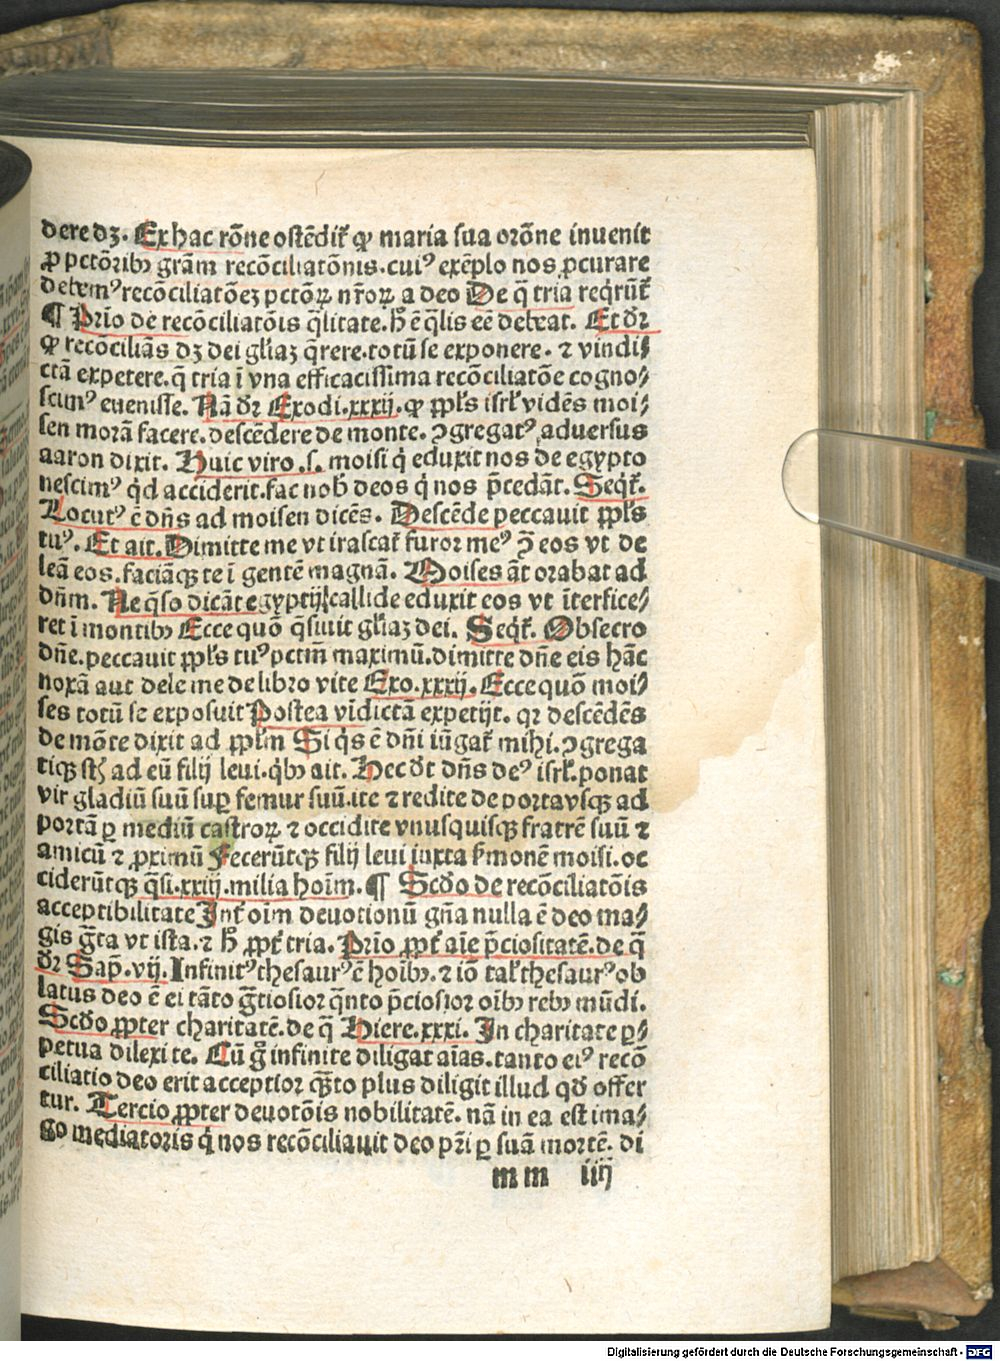 dere dꝫ. Ex hac rōne ostēdit᷑ ꝙ maria sua orōne inuenit
ꝓ pctōribꝰ grām recōciliatōnis. cuiꝰ exēplo nos ꝓcurare
debemꝰ recōciliatōeꝫ pctōꝝ nr̄oꝝ a deo De q̄ tria req̇rūt᷑
¶ Prīo de recōciliatōis q̄litate. h̄ ē q̄lis eē debeat. Et dr̄
ꝙ recōciliās dꝫ dei gl̄iaꝫ q̄rere. totū se exponere. ⁊ vindi⸗
ctā expetere. q̄ tria ī vna efficacissima recōciliatōe cogno⸗
scimꝰ euenisse. Nā dr̄ Exodi. xxxij. ꝙ ppl̄s isrl̄ vidēs moi⸗
sen morā facere. descēdere de monte. ꝯgregatꝰ aduersus
aaron dixit. Huic viro .s. moisi q̇ eduxit nos de egypto
nescimꝰ qd̄ acciderit. fac nob̄ deos q̇ nos p̄cedāt. Seqt᷑.
Locutꝰ ē dn̄s ad moisen dicēs. Descēde peccauit ppl̄s
tuꝰ. Et ait. Dimitte me vt irascat᷑ furor meꝰ ꝯ̄ eos vt de
leā eos. faciāqꝫ te ī gentē magnā. Moises āt orabat ad
dn̄m. Ne q̄so dicāt egyptij callide eduxit eos vt īterfice⸗
ret ī montibꝰ Ecce quō q̄siuit gl̄iaꝫ dei. Seqt᷑. Obsecro
dn̄e. peccauit ppl̄s tuꝰ pctm̄ maximū. dimitte dn̄e eis hāc
noxā aut dele me de libro vite Exo. xxxij. Ecce quō moi⸗
ses totū se exposuit Postea vīdictā expetijt. qꝛ descēdēs
de mōte dixit ad ppl̄m Si q̇s ē dn̄i iūgat᷑ mihi. ꝯgrega
tiqꝫ st̄ ad eū filij leui. q̇bꝰ ait. Hec dt̄ dn̄s deꝰ isrl̄. ponat
vir gladiū suū suꝑ femur suū. ite ⁊ redite de porta vsqꝫ ad
portā ꝑ mediū castroꝝ ⁊ occidite vnusquisqꝫ fratrē suū ⁊
amicū ⁊ ꝓximū Fecerūtqꝫ filij leui iuxta s̄monē moisi. oc
ciderūtqꝫ q̄si. xxiij. milia hoīm. ¶ Scd̄o de recōciliatōis
acceptibilitate Int᷑ oīm deuotionū gn̄a nulla ē deo ma⸗
gis gr̄ta vt ista. ⁊ h̄ ꝓpt᷑ tria. Prīo ꝓpt᷑ aīe p̄ciositatē. de q̄
dr̄ Sap̄. vij. Infinitꝰ thesaurꝰ ē hoībꝰ. ⁊ iō tal̄ thesaurꝰ ob
latus deo ē ei tāto gr̄tiosior q̄nto p̄ciosior oībꝰ rebꝰ mūdi.
Scd̄o ꝓpter charitatē. de q̄ Hiere. xxxi. In charitate ꝑ⸗
petua dilexi te. Cū g̊ infinite diligat aīas. tanto eiꝰ recō
ciliatio deo erit acceptior q̄ꝫto plus diligit illud qd̄ offer
tur. Tercio ꝓpter deuotōis nobilitatē. nā in ea est ima⸗
go mediatoris q̇ nos recōciliauit deo pr̄i ꝑ suā mortē. di
mm iiij
Digitalisierung gefördert durch die Deutsche Forschungsgemeinschaft - DFG